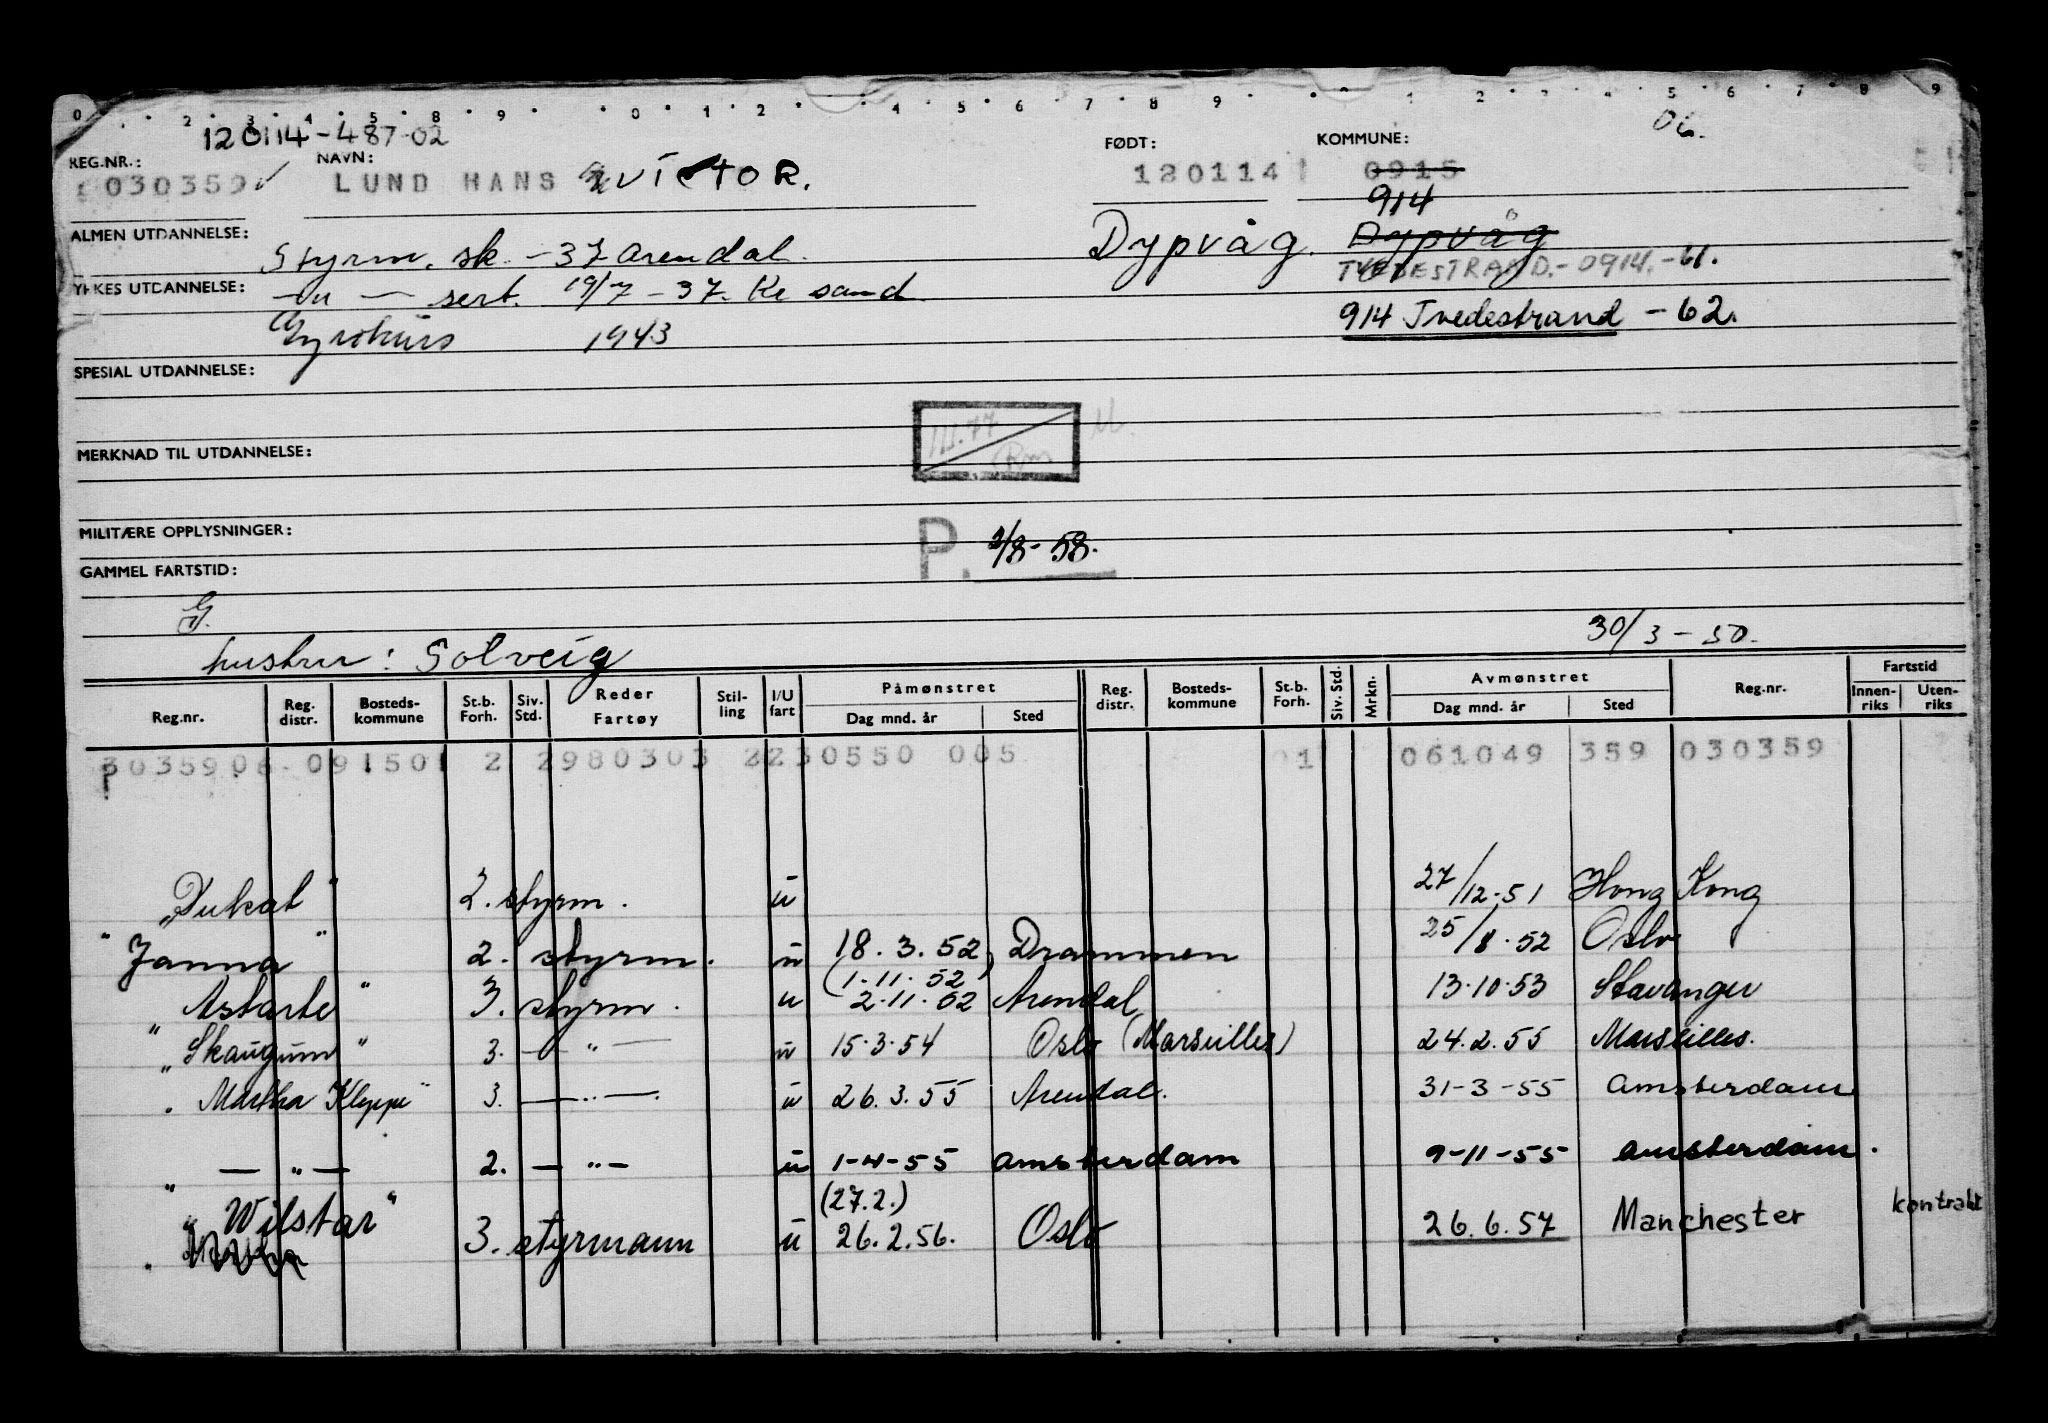 0 2 3 4 5 8 9 0 1 2 4 5 6 7 8 9 1 2 3 4 5 6 7 8 9
120114-487-02
06.
REG.NR.: NAVN: FØDT: KOMMUNE:
030359 LUND HANS VICTOR. 120114 0915
914
ALMEN UTDANNELSE: Styrm. sk. -37 Arendal. Dypvåg. Dypvåg
TVEDESTRAND.-0914.-61.
YRKES UTDANNELSE: -"- sert. 19/7-37. Kr sand
914 Tvedestrand -62.
Gyrokurs 1943
SPESIAL UTDANNELSE:
MERKNAD TIL UTDANNELSE:
MILITÆRE OPPLYSNINGER:
P. 2/8-58.
GAMMEL FARTSTID:
G.
hustru: Solveig 30/3-50.
Reg.nr. Reg. distr. Bosteds-kommune St.b. Forh. Siv. Std. Reder Fartøy Stil-ling I/U fart Påmønstret Dag mnd. år Sted Reg. distr. Bosteds-kommune St.b. Forh. Siv. Std. Mrkn. Avmønstret Dag mnd. år Sted Reg.nr. Fartstid Innen-riks Uten-riks
3035906 091501 2 2980303 2230550 005 01 061049 359 030359
"Dukat" 2. styrm. u 27/12-51 Hong Kong
"Janna" 2. styrm. u 18.3.52 Drammen 25/8.52 Oslo
(1.11.52)
"Astarte" 3. styrm. u 2.11.52 Arendal 13.10.53 Stavanger
"Skaugum" 3. -"- u 15.3.54 Oslo (Marseilles) 24.2.55 Marseilles.
"Martha Kleppe" 3. -"- u 26.3.55 Arendal. 31-3-55 Amsterdam
-"- 2. -"- u 1-4-55 Amsterdam 9-11-55 Amsterdam.
(27.2.)
"Wilstar" 3. styrmann u 26.2.56. Oslo 26.6.57 Manchester kontrakt